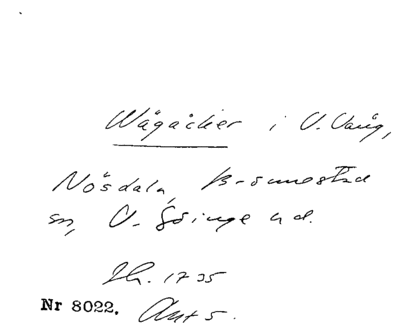 Wågåcker i V. Vång,
Nösdala, Brönnestad
sn, V. Göinge hd.
Lh. 1735
Nr 8022. Akt 5.